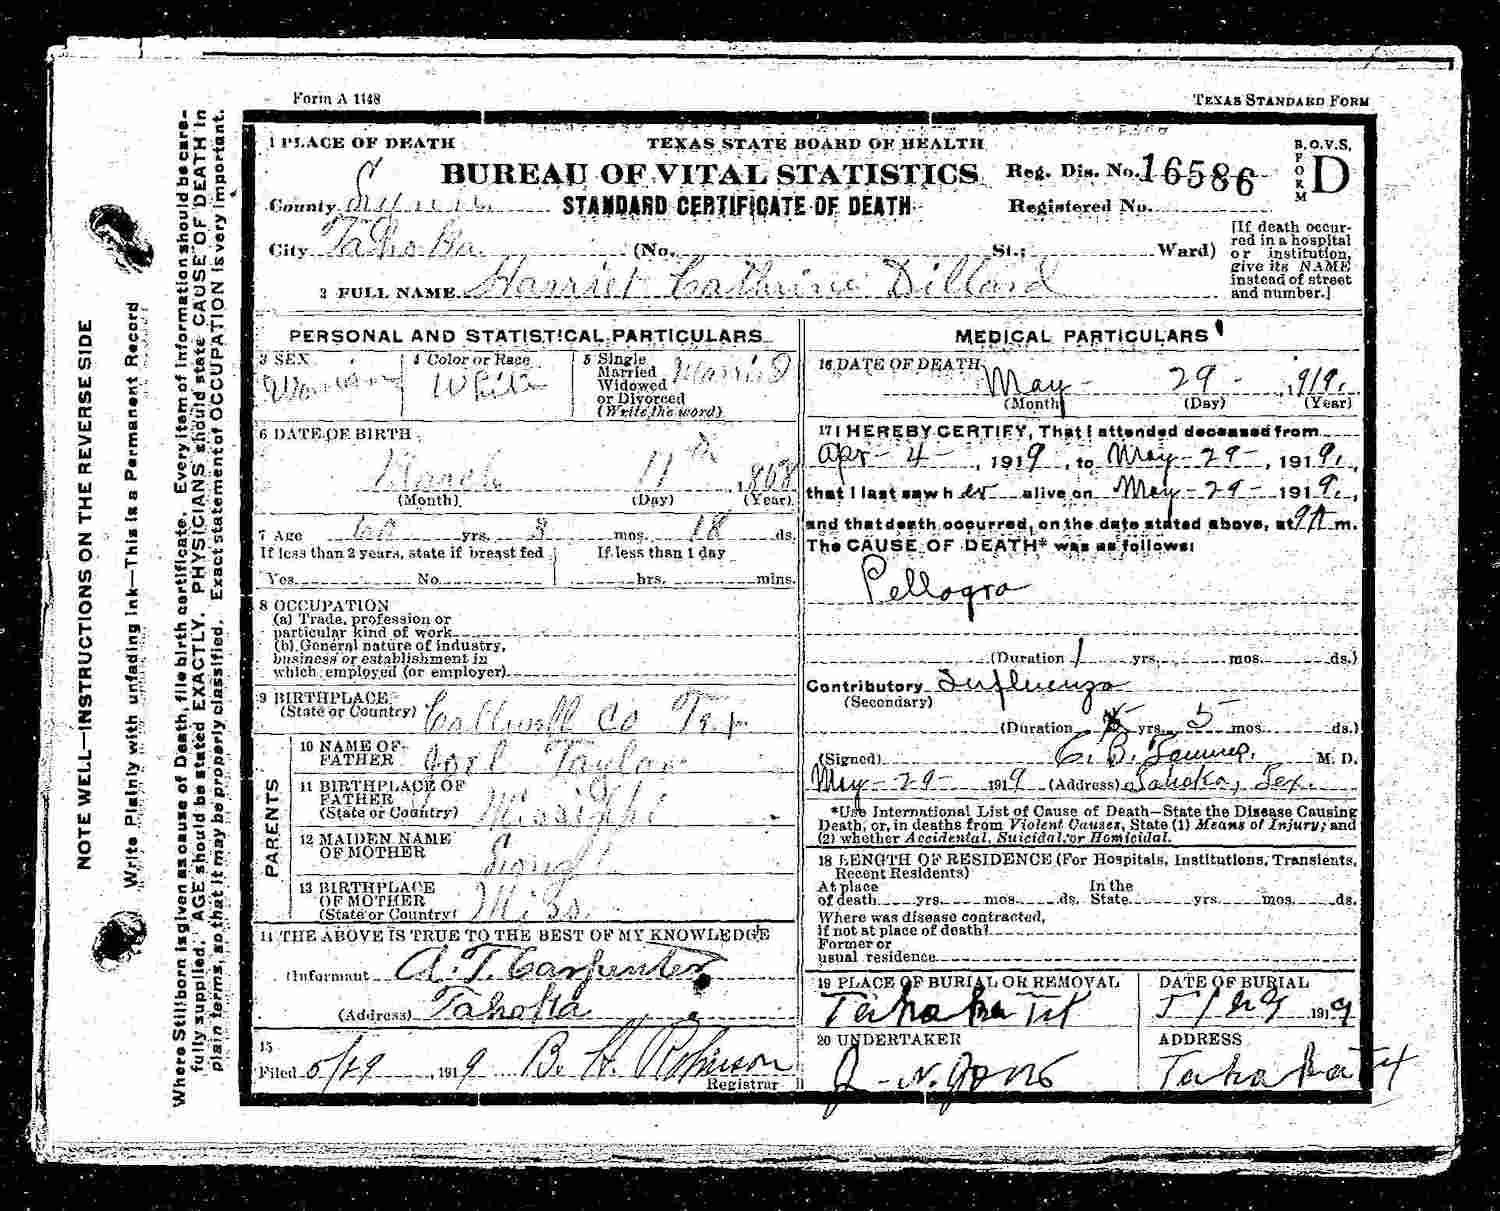 Form A 1148
TEXAS STANDARD FORM
NOTE WELL—INSTRUCTIONS ON THE REVERSE SIDE
Write Plainly with unfading Ink—This is a Permanent Record
Where Stillborn is given as cause of Death, file birth certificate. Every item of information should be care-
fully supplied. AGE should be stated EXACTLY. PHYSICIANS should state CAUSE OF DEATH in
plain terms, so that it may be properly classified. Exact statement of OCCUPATION is very important.
1 PLACE OF DEATH
TEXAS STATE BOARD OF HEALTH
BUREAU OF VITAL STATISTICS
STANDARD CERTIFICATE OF DEATH
Reg. Dis. No. 16586
Registered No.
B.O.V.S.
FORM D
County
City Tahoka (No. St.; Ward)
[If death occur-
red in a hospital
or institution,
give its NAME
instead of street
and number.]
2 FULL NAME Harriet Cathrine Dillard
PERSONAL AND STATISTICAL PARTICULARS
3 SEX Woman
4 Color or Race White
5 Single
Married
Widowed
or Divorced
(Write the word) Married
6 DATE OF BIRTH
March 11th, 1868
(Month) (Day) (Year)
7 Age yrs. 3 mos. 18 ds.
If less than 2 years, state if breast fed If less than 1 day
Yes No hrs. mins.
8 OCCUPATION
(a) Trade, profession or
particular kind of work
(b) General nature of industry,
business or establishment in
which employed (or employer)
9 BIRTHPLACE
(State or Country) Calwell Co Tex
PARENTS
10 NAME OF
FATHER Joel Taylor
11 BIRTHPLACE OF
FATHER
(State or Country)
12 MAIDEN NAME
OF MOTHER
13 BIRTHPLACE
OF MOTHER
(State or Country) Miss.
14 THE ABOVE IS TRUE TO THE BEST OF MY KNOWLEDGE
(Informant A. T. Carpenter
(Address) Tahoka
15
Filed 5/29, 1919 B. H. Robinson
Registrar
MEDICAL PARTICULARS
16 DATE OF DEATH May - 29 - , 1919.
(Month) (Day) (Year)
17 I HEREBY CERTIFY, That I attended deceased from
Apr - 4 - , 1919, to May - 29 - , 1919.,
that I last saw her alive on May - 29 - 1919.,
and that death occurred, on the date stated above, at 9 A m.
The CAUSE OF DEATH* was as follows:
Pellagra
(Duration 1 yrs. mos. ds.)
Contributory Influenza
(Secondary)
(Duration yrs. 5 mos. ds.)
(Signed) C. B. M. D.
May - 29 - 1919 (Address) Tahoka, Tex.
*Use International List of Cause of Death—State the Disease Causing
Death, or, in deaths from Violent Causes, State (1) Means of Injury; and
(2) whether Accidental, Suicidal, or Homicidal.
18 LENGTH OF RESIDENCE (For Hospitals, Institutions, Transients,
Recent Residents)
At place In the
of death yrs. mos. ds. State yrs. mos. ds.
Where was disease contracted,
if not at place of death?
Former or
usual residence
19 PLACE OF BURIAL OR REMOVAL
Tahoka TX
DATE OF BURIAL
5/29 1919
20 UNDERTAKER
J. N. Jones
ADDRESS
Tahoka TX